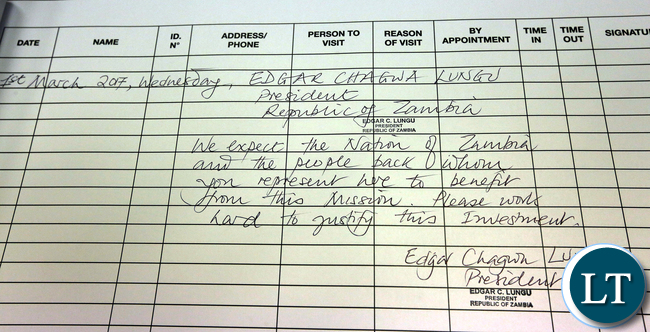 DATE NAME ID. N° ADDRESS/ PHONE PERSON TO VISIT REASON OF VISIT BY APPOINTMENT TIME IN TIME OUT SIGNATU
1st March 2017, Wednesday, EDGAR CHAGWA LUNGU
President
Republic of Zambia
EDGAR C. LUNGU
PRESIDENT
REPUBLIC OF ZAMBIA
We expect the Nation of Zambia
and the people back whom
you represent here to benefit
from this Mission. Please work
hard to justify this Investment.
Edgar Chagwa LU
President
EDGAR C. LUNGU
PRESIDENT
REPUBLIC OF ZAMBIA
LT